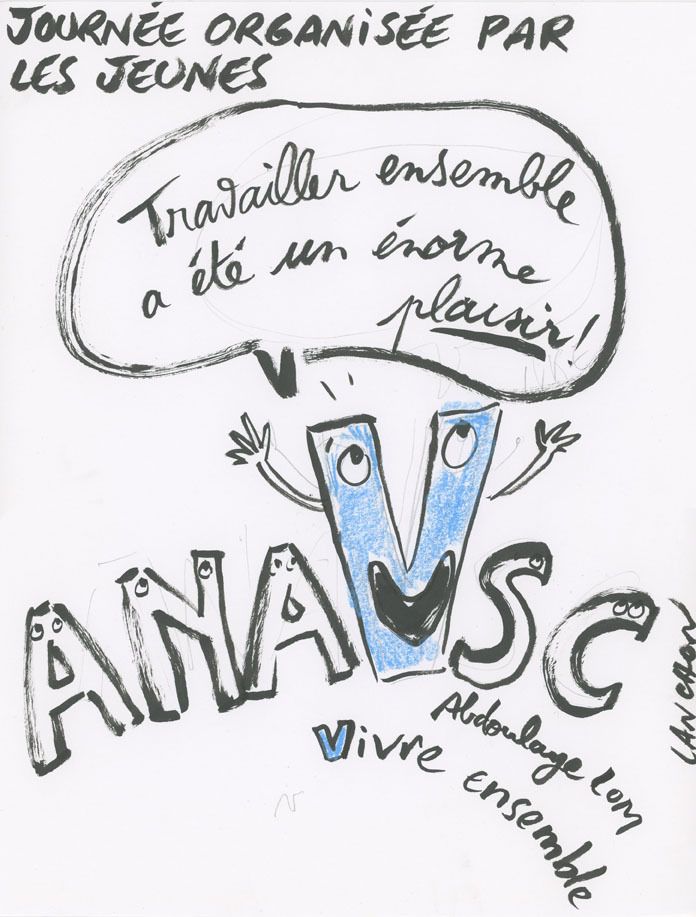 JOURNÉE ORGANISÉE PAR
LES JEUNES
Travailler ensemble
a été un énorme
plaisir!
ANAVSC
Abdoulaye LOM
Vivre ensemble